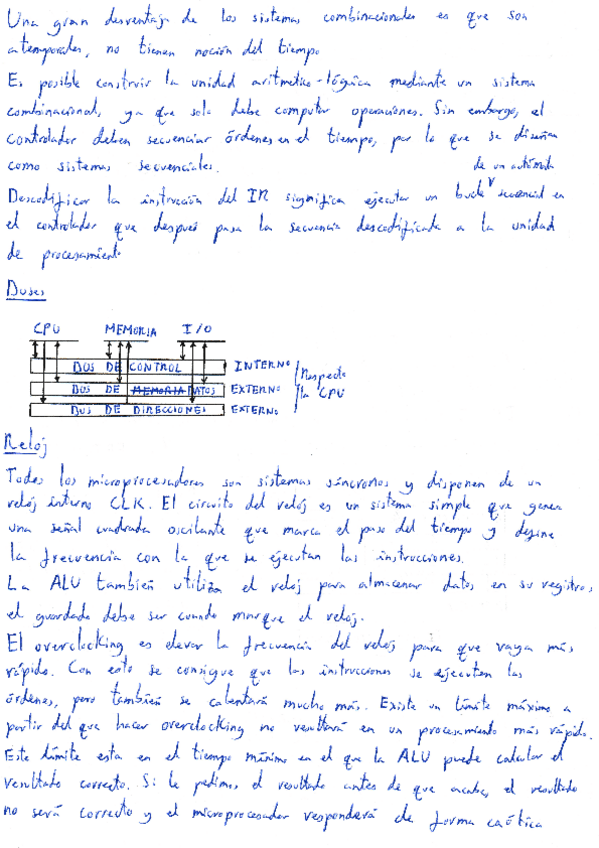 Una gran desventaja de los sistemas combinacionales es que son
atemporales, no tienen noción del tiempo
Es posible construir la unidad aritmetico-lógica mediante un sistema
combinacional, ya que solo debe computar operaciones. Sin embargo, el
controlador deben secuenciar órdenes en el tiempo, por lo que se diseñan
como sistemas secuenciales.
de un autómata
Descodificar la instrucción del IR significa ejecutar un bucle secuencial en
el controlador que después pasa la secuencia descodificada a la unidad
de procesamiento
Buses
CPU MEMORIA I/O
BUS DE CONTROL INTERNO
BUS DE MEMORIA DATOS EXTERNO
BUS DE DIRECCIONES EXTERNO
Respecto
la CPU
Reloj
Todos los microprocesadores son sistemas síncronos y disponen de un
reloj interno CLK. El circuito del reloj es un sistema simple que genera
una señal cuadrada oscilante que marca el paso del tiempo y define
la frecuencia con la que se ejecutan las instrucciones.
La ALU también utiliza el reloj para almacenar datos en su registros,
el guardado debe ser cuando marque el reloj.
El overclocking es elevar la frecuencia del reloj para que vaya más
rápido. Con esto se consigue que las instrucciones se ejecuten las
órdenes, pero también se calentará mucho más. Existe un límite máximo a
partir del que hacer overclocking no resultará en un procesamiento más rápido.
Este límite esta en el tiempo mínimo en el que la ALU puede calcular el
resultado correcto. Si le pedimos el resultado antes de que acabe, el resultado
no será correcto y el microprocesador responderá de forma caótica